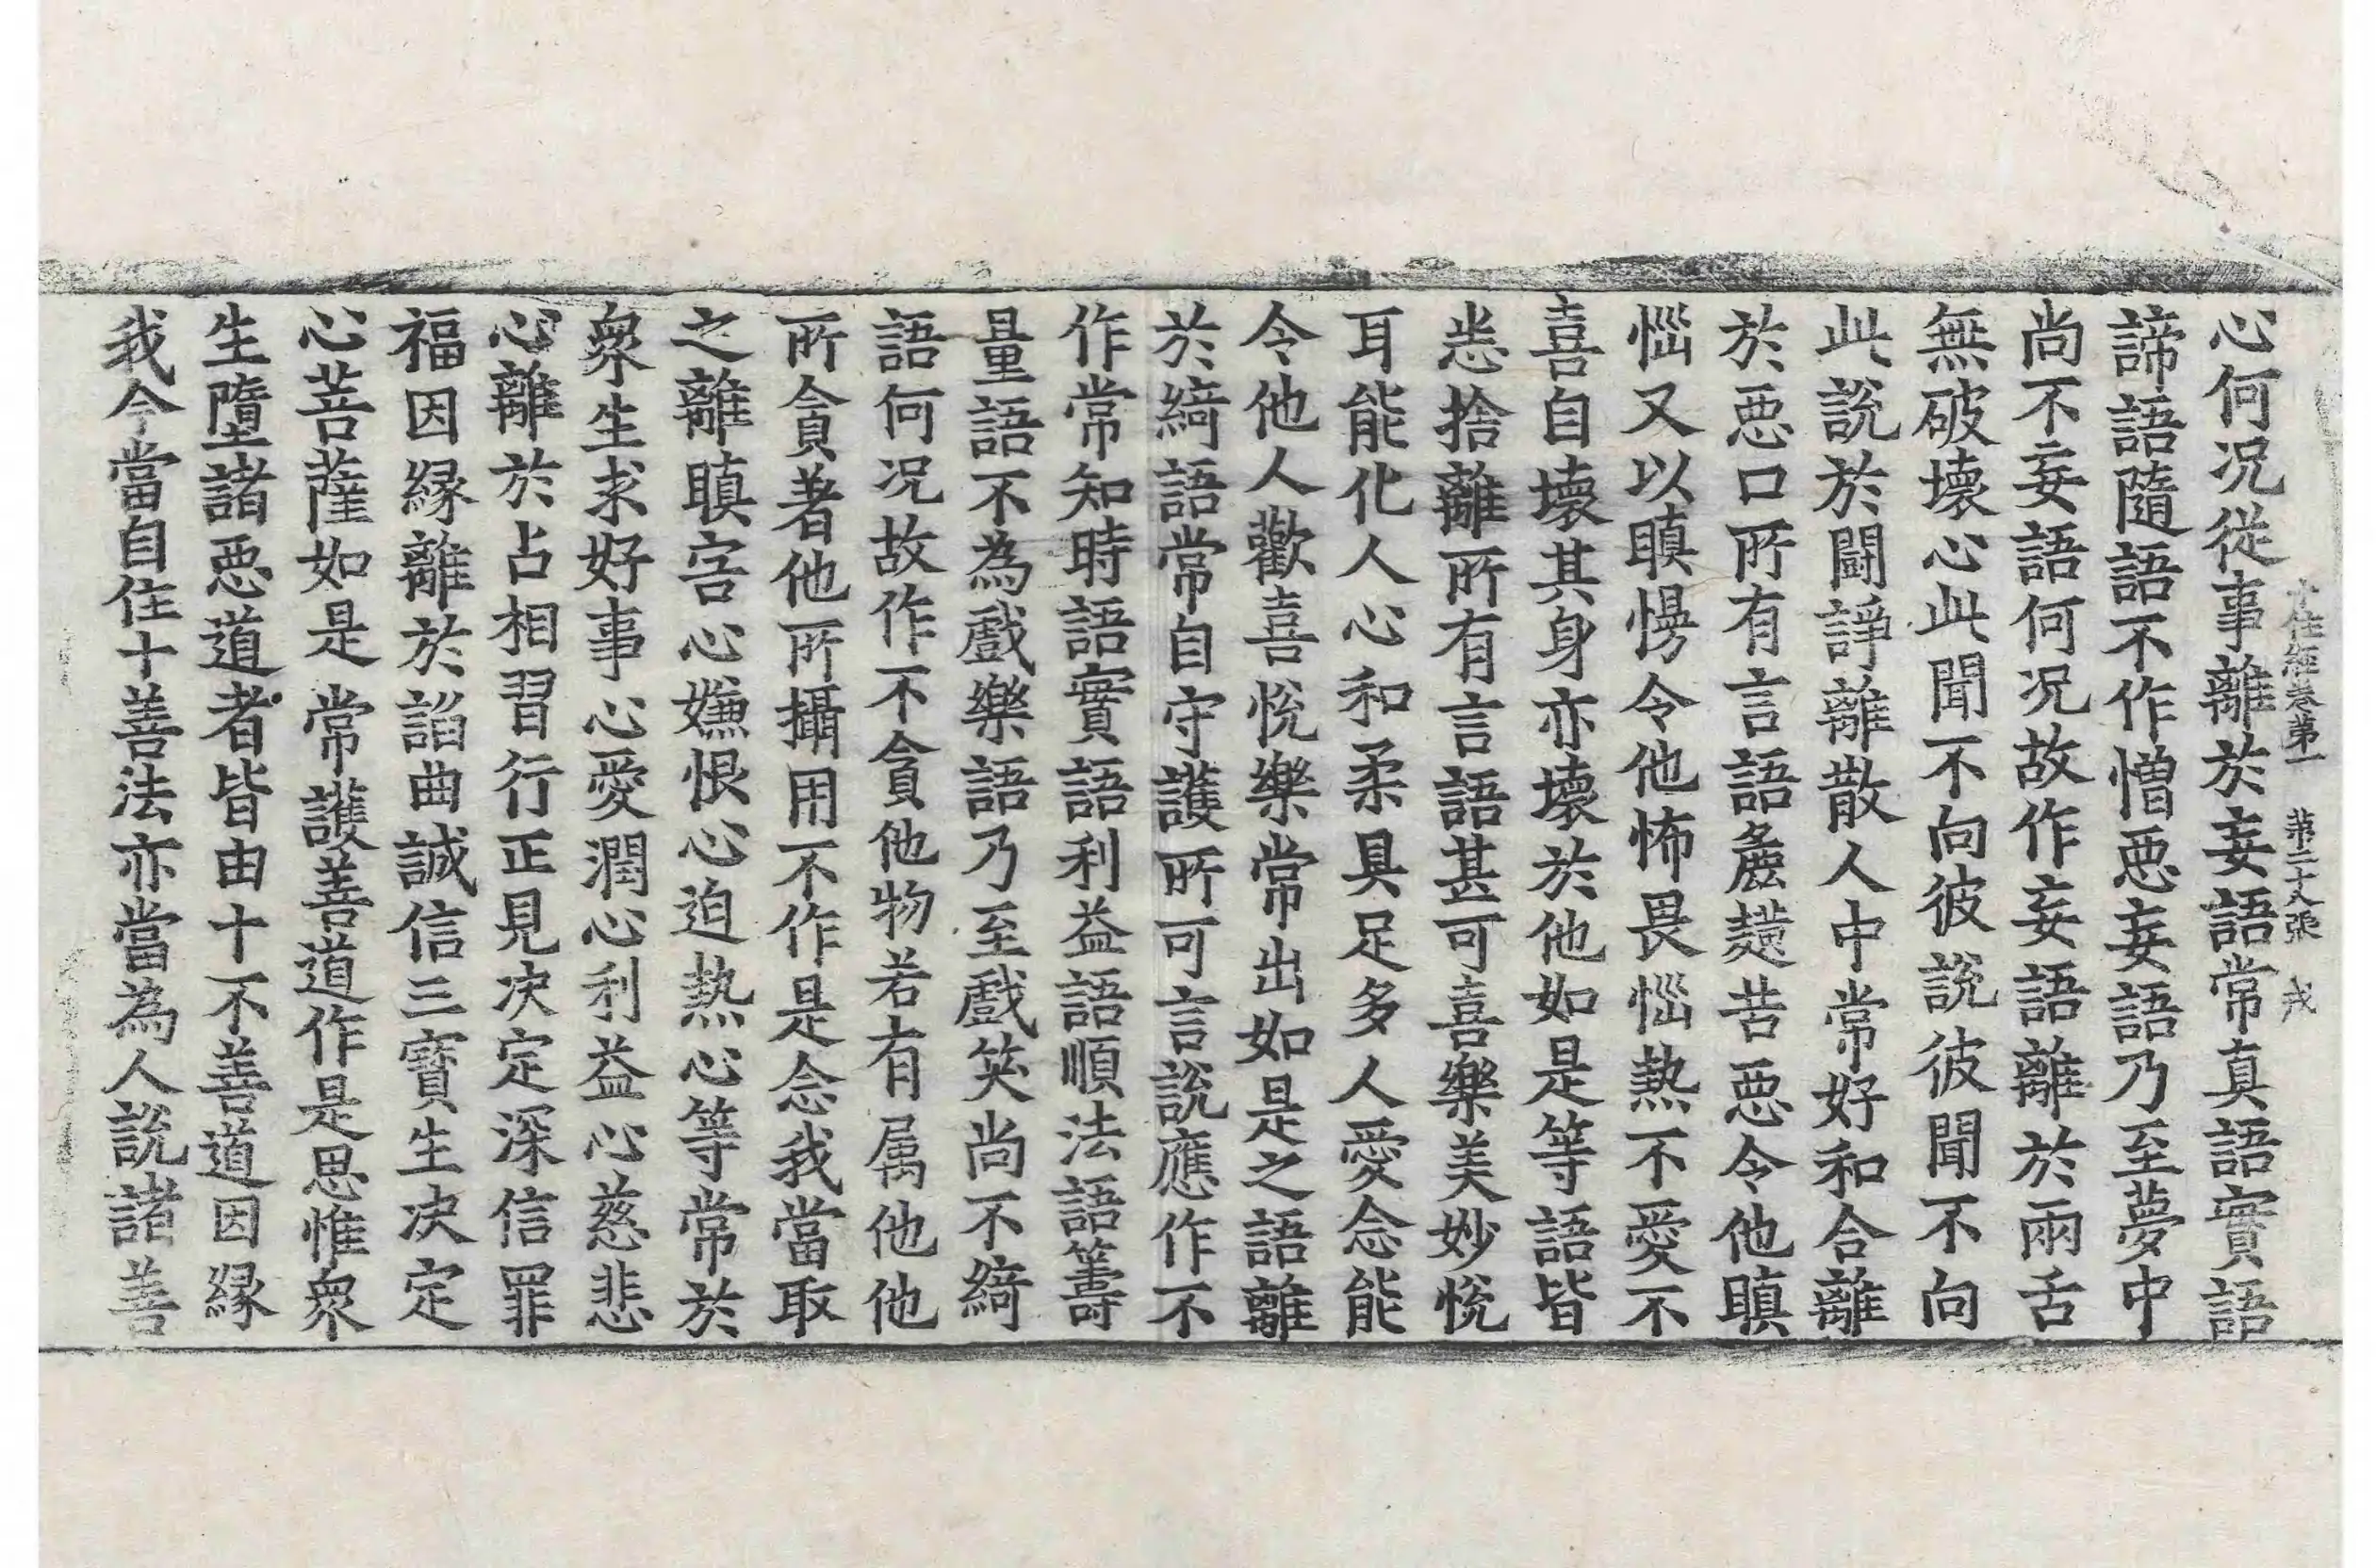 十住經卷第一　第二十丈張　戎
心何况從事離於妄語常真語實語
諦語隨語不作憎惡妄語乃至夢中
尚不妄語何况故作妄語離於兩舌
無破壞心此聞不向彼說彼聞不向
此說於闘諍離散人中常好和合離
於惡口所有言語麁獷苦惡令他瞋
惱又以瞋慢令他怖畏惱熱不愛不
喜自壞其身亦壞於他如是等語皆
悉捨離所有言語甚可喜樂美妙悅
耳能化人心和柔具足多人愛念能
令他人歡喜悅樂常出如是之語離
於綺語常自守護所可言說應作不
作常知時語實語利益語順法語籌
量語不為戲樂語乃至戲笑尚不綺
語何况故作不貪他物若有属他他
所貪著他所攝用不作是念我當取
之離瞋害心嫌恨心迫熱心等常於
衆生求好事心愛潤心利益心慈悲
心離於占相習行正見决定深信罪
福因緣離於諂曲誠信三寶生决定
心菩薩如是常護善道作是思惟衆
生墮諸惡道者皆由十不善道因縁
我今當自住十善法亦當為人說諸善